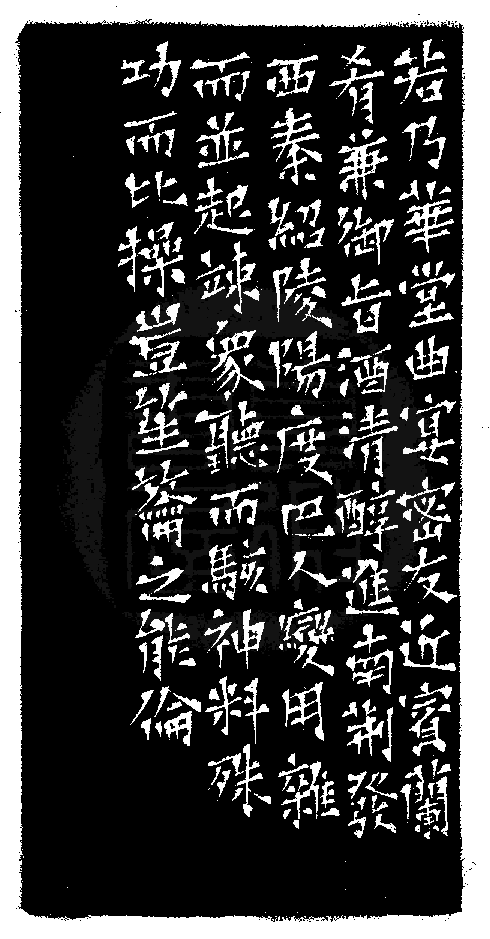 若乃華堂曲宴密友近賓蘭
肴兼御旨酒清醇進南荊發
西秦紹陵陽度巴人變用雜
而並起竦眾聽而駭神料殊
功而比操豈笙籥之能倫